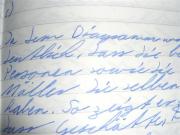 In dem Diagramm w
deutlich, dass die
Personen sowie die
Mällen die selben
haben. So zeigt er
Geschäfte